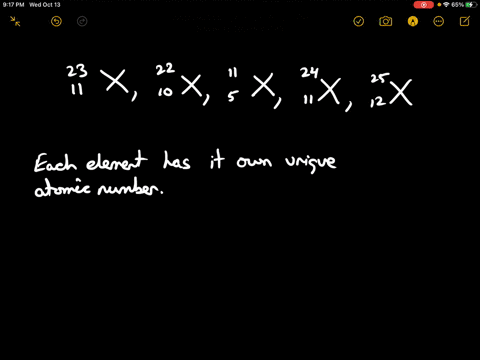 9:17 PM Wed Oct 13
65%
23 11 X, 22 10 X, 11 5 X, 24 11 X, 25 12 X
Each element has it own unique
atomic number.